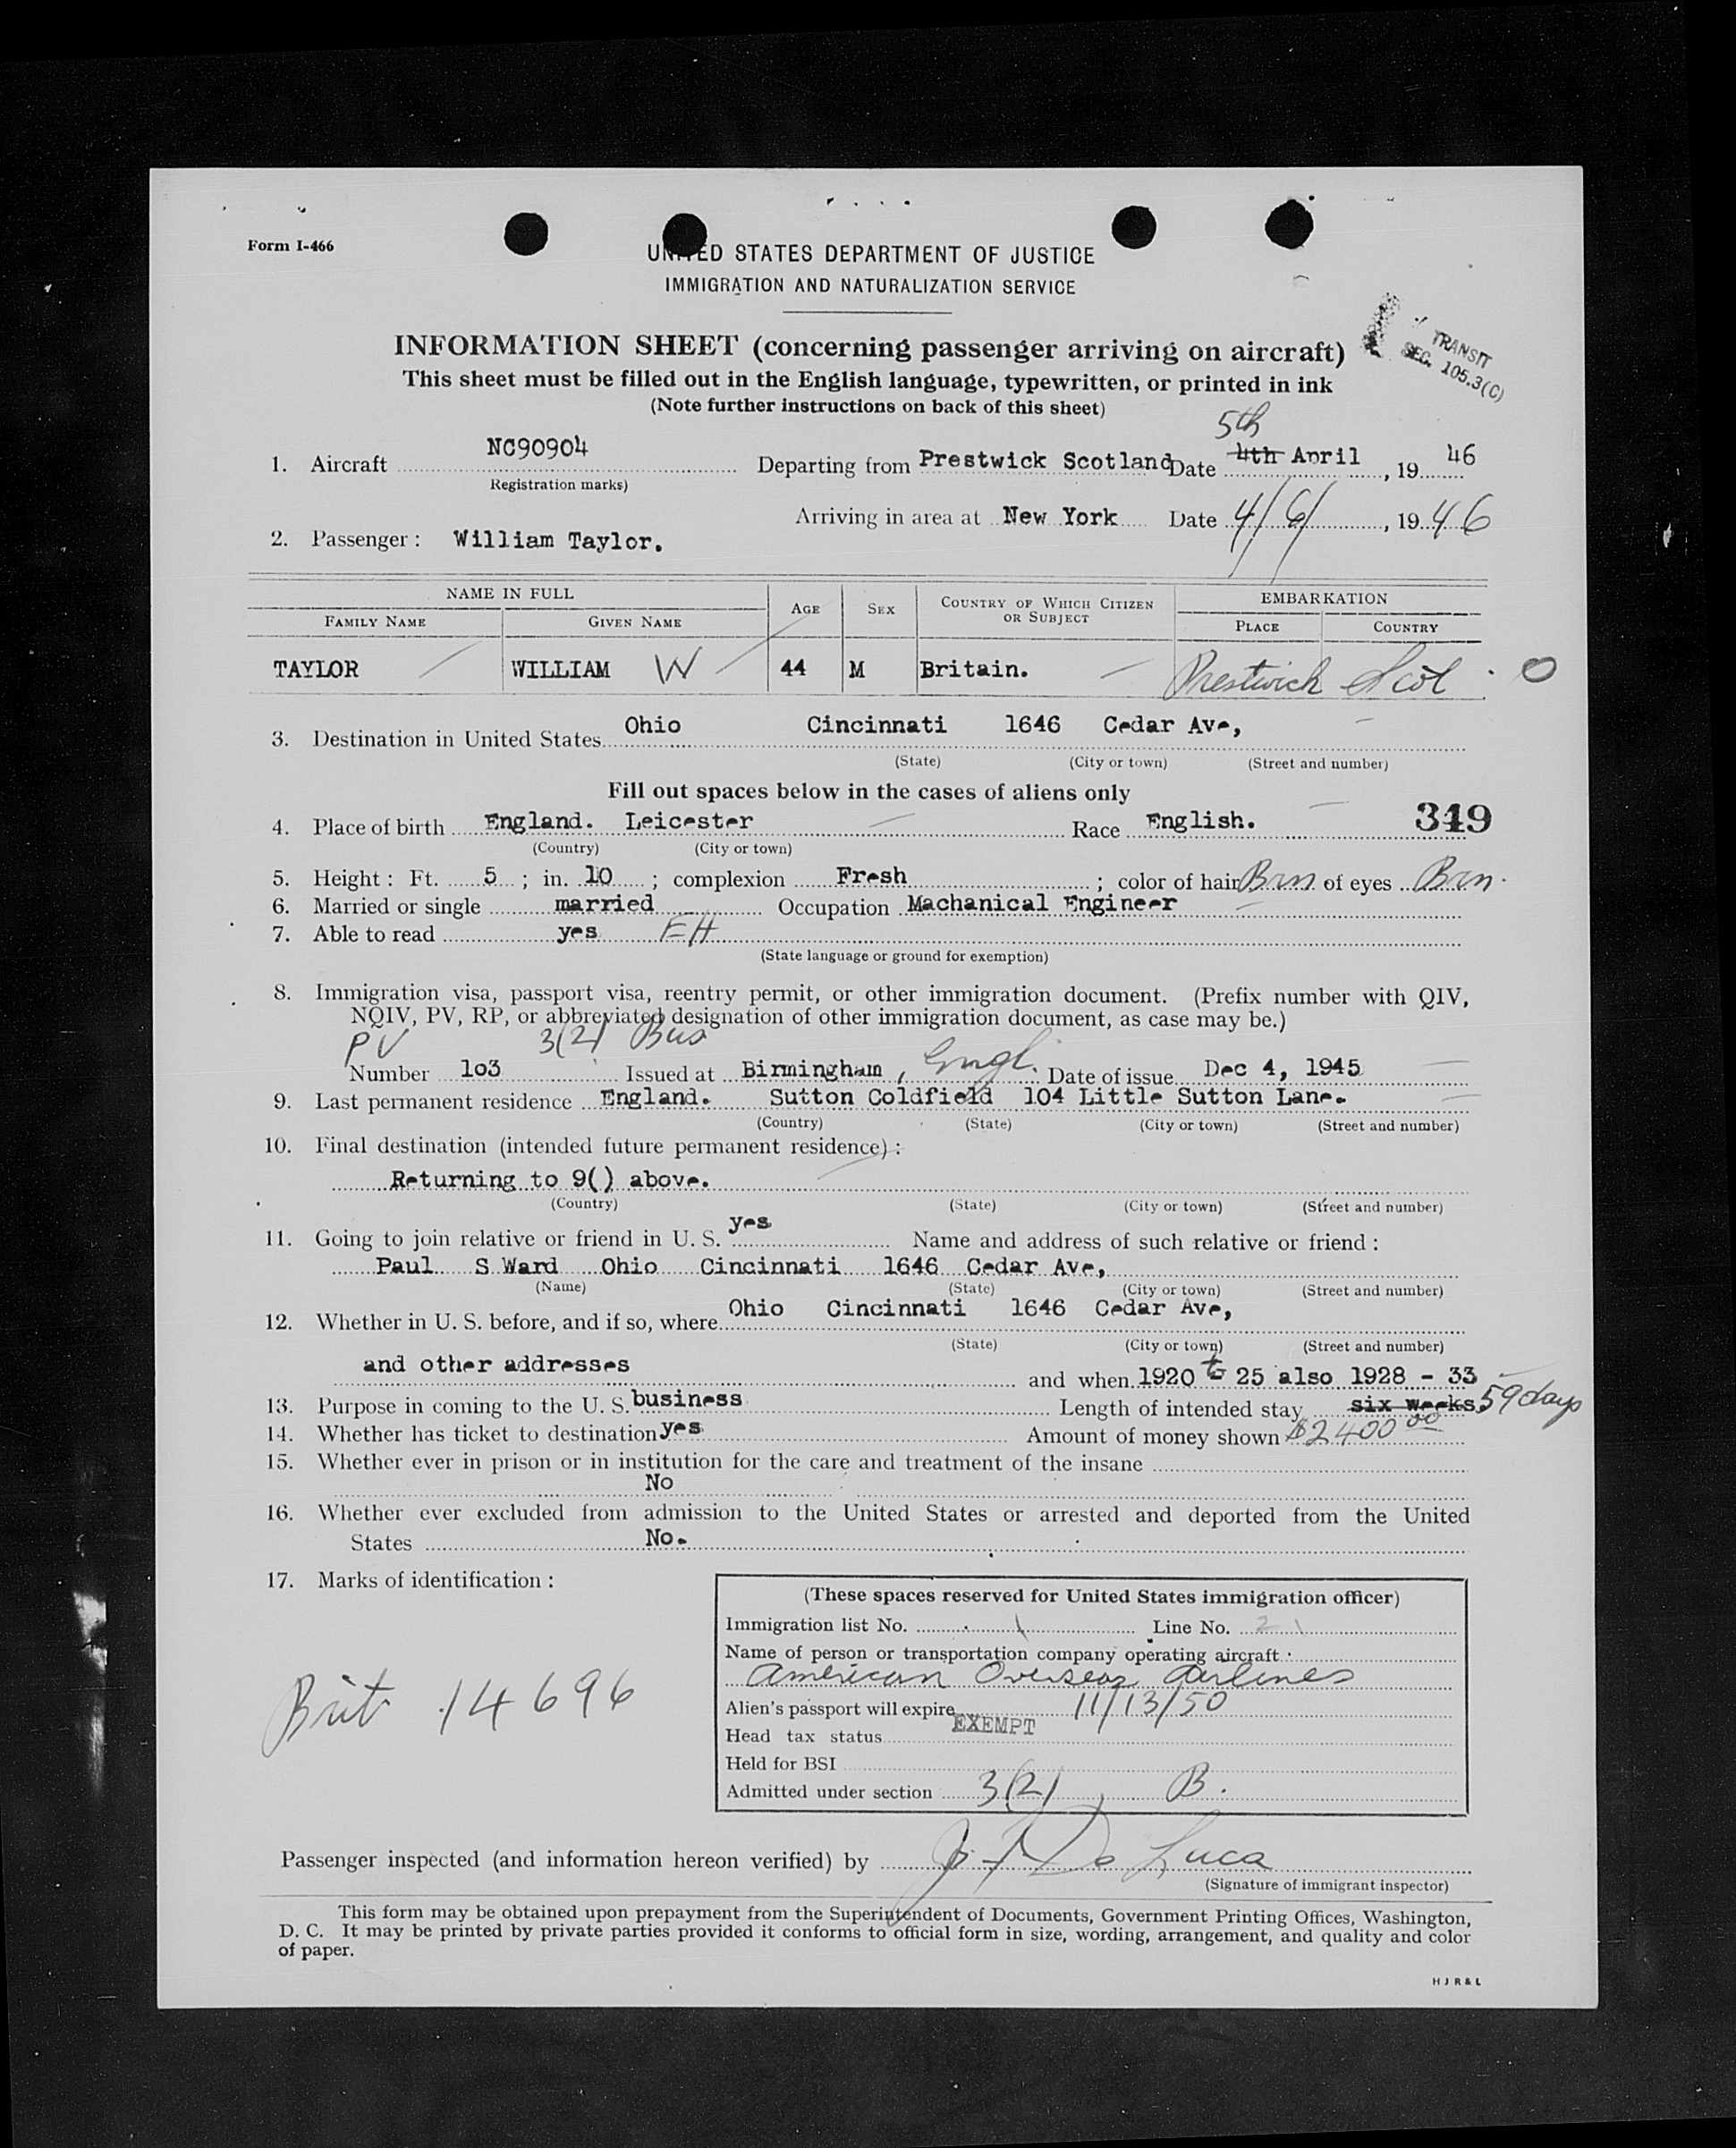 Form I-466
UNITED STATES DEPARTMENT OF JUSTICE
IMMIGRATION AND NATURALIZATION SERVICE
INFORMATION SHEET (concerning passenger arriving on aircraft)
TRANSIT
SEC. 105.3(C)
This sheet must be filled out in the English language, typewritten, or printed in ink
(Note further instructions on back of this sheet)
5th
1. Aircraft NC90904 Departing from Prestwick Scotland Date 4th April, 19 46
(Registration marks)
Arriving in area at New York Date 4/6/, 19 46
2. Passenger: William Taylor.
NAME IN FULL AGE SEX COUNTRY OF WHICH CITIZEN OR SUBJECT EMBARKATION
FAMILY NAME GIVEN NAME PLACE COUNTRY
TAYLOR WILLIAM W 44 M Britain. Prestwick Scot. O
3. Destination in United States Ohio Cincinnati 1646 Cedar Ave,
(State) (City or town) (Street and number)
Fill out spaces below in the cases of aliens only
4. Place of birth England. Leicester Race English. 349
(Country) (City or town)
5. Height: Ft. 5; in. 10; complexion Fresh; color of hair Brn of eyes Brn.
6. Married or single married Occupation Machanical Engineer
7. Able to read yes EH
(State language or ground for exemption)
8. Immigration visa, passport visa, reentry permit, or other immigration document. (Prefix number with QIV,
NQIV, PV, RP, or abbreviated designation of other immigration document, as case may be.)
PV 3(2) Bus
Number 1o3 Issued at Birmingham, Engl. Date of issue Dec 4, 1945
9. Last permanent residence England. Sutton Coldfield 104 Little Sutton Lane.
(Country) (State) (City or town) (Street and number)
10. Final destination (intended future permanent residence):
Returning to 9() above.
(Country) (State) (City or town) (Street and number)
11. Going to join relative or friend in U. S. yes Name and address of such relative or friend:
Paul S Ward Ohio Cincinnati 1646 Cedar Ave,
(Name) (State) (City or town) (Street and number)
12. Whether in U. S. before, and if so, where Ohio Cincinnati 1646 Cedar Ave,
(State) (City or town) (Street and number)
and other addresses and when 1920 to 25 also 1928 - 33
13. Purpose in coming to the U. S. business Length of intended stay six weeks 59 days
14. Whether has ticket to destination yes Amount of money shown $2400 00
15. Whether ever in prison or in institution for the care and treatment of the insane
No
16. Whether ever excluded from admission to the United States or arrested and deported from the United
States No.
17. Marks of identification:
(These spaces reserved for United States immigration officer)
Immigration list No. 1 Line No. 21
Name of person or transportation company operating aircraft:
American Overseas Airlines
Alien's passport will expire 11/13/50
Head tax status EXEMPT
Held for BSI
Admitted under section 3(2) B.
Brit 14696
Passenger inspected (and information hereon verified) by De Luca
(Signature of immigrant inspector)
This form may be obtained upon prepayment from the Superintendent of Documents, Government Printing Offices, Washington,
D. C. It may be printed by private parties provided it conforms to official form in size, wording, arrangement, and quality and color
of paper.
H J R & L